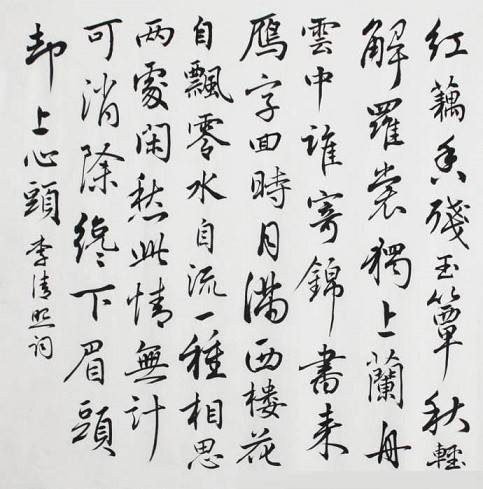 红藕香殘玉簟秋輕
解羅裳獨上蘭舟
雲中誰寄錦書来
鴈字回時月滿西楼花
自飄零水自流一種相思
两處闲愁此情無計
可消除纔下眉頭
却上心頭 李清照词